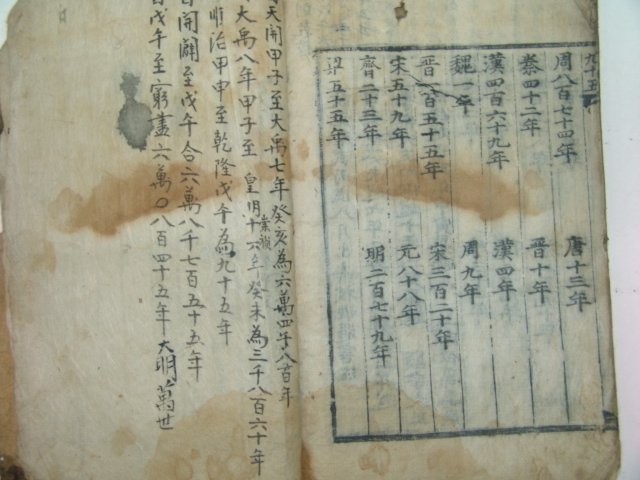 九十五
周八百七十四年 唐十三年
秦四十二年 晋十年
漢四百六十九年 漢四年
魏一年 周九年
晋一百五十五年 宋三百二十年
宋五十九年 元八十八年
齊二十三年 明二百七十九年
梁五十五年
天開甲子至大禹七年癸亥為六萬四千八百年
大禹八年甲子至皇明崇禎十六年癸未為三千八百六十年
順治甲申至乾隆戊午為九十五年
開闢至戊午合六萬八千七百五十五年
戊午至窮盡六萬〇八百四十五年 大明萬世